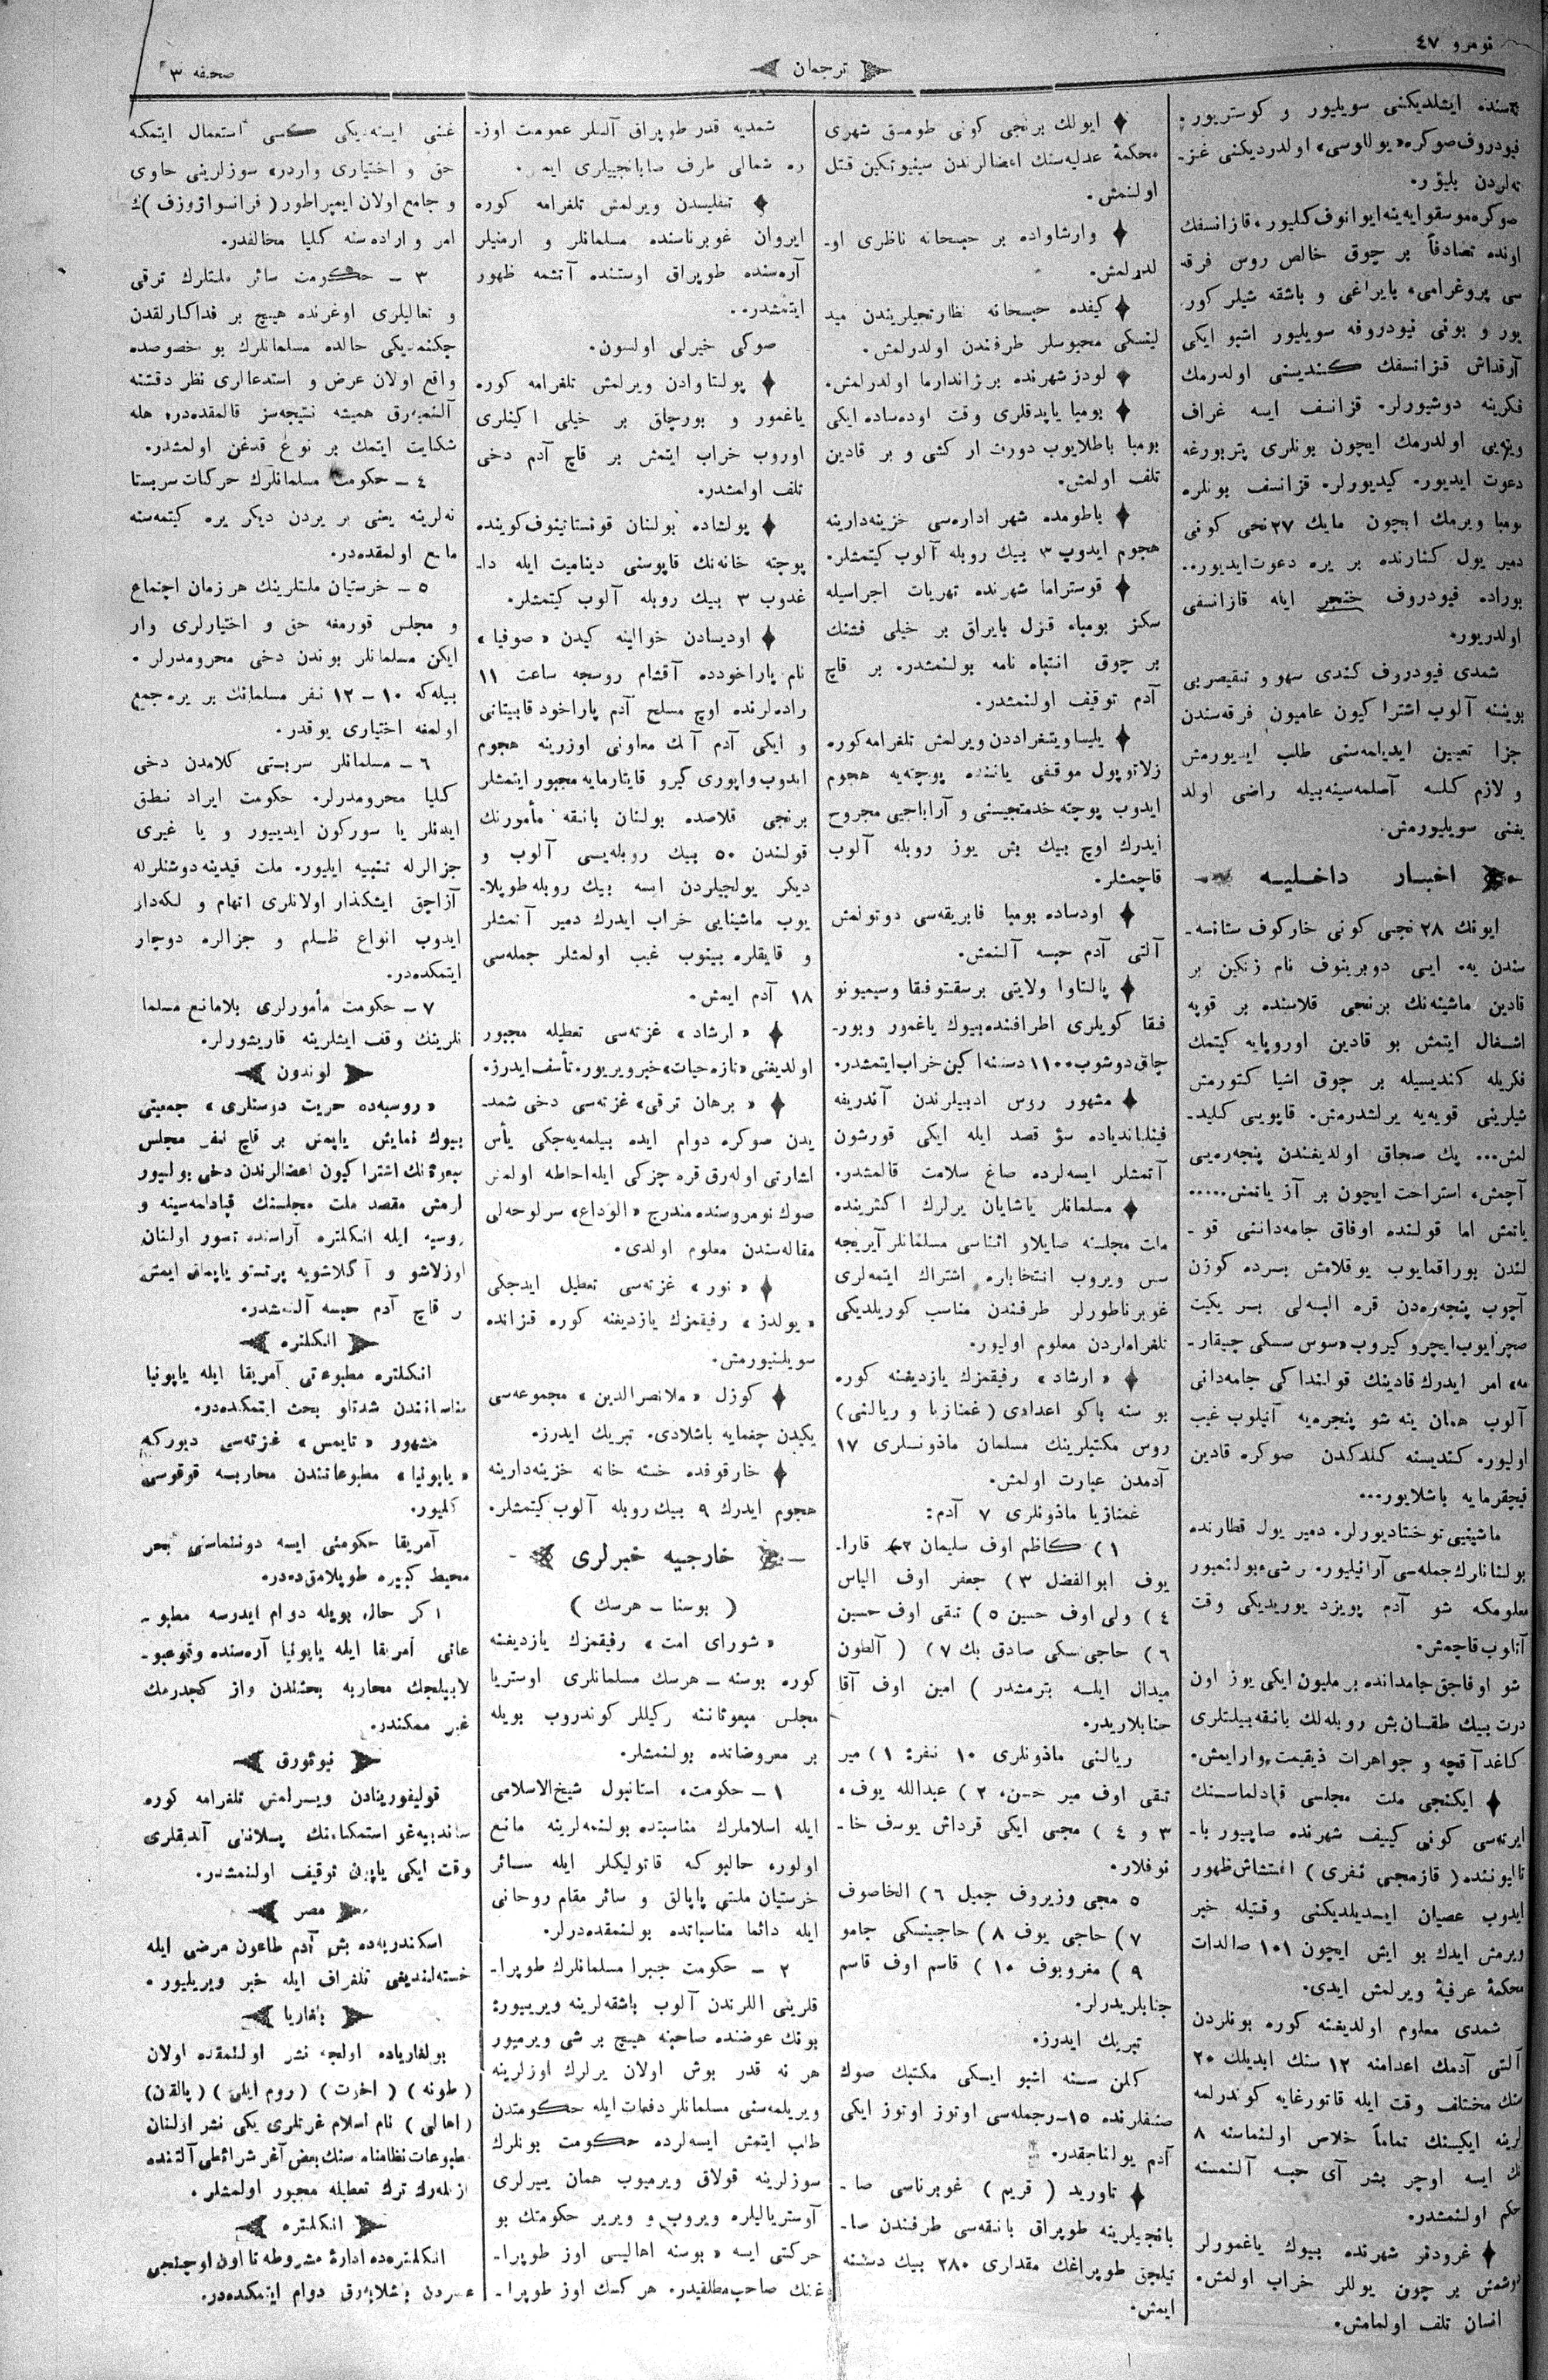 نومرو ٤٧
ترجمان
صحیفه ٣
سنده ایشلدیکنی سویلیور و کوستریور.
فیودروف صوکره «یوللوسی» اولدردیکنی غز-
ته‌لردن بلیور.
صوکره موسقوایه ینه ایوانوف کلیور، قازانسفك
اونده تصادفاً بر چوق خالص روس فرقه
سی پروغرامی، بایراغی و باشقه شیلر کور
یور و بونی فیودروفه سویلیور اشبو ایکی
آرقداش قزانسفك کندیسنی اولدرمك
فکرینه دوشیورلر. قزانسف ایسه غراف
ویته‌یی اولدرمك ایچون بونلری پتربورغه
دعوت ایدیور. کیدیورلر. قزانسف بونلره
بومبا ویرمك ایچون مایك ٢٧ نجی کونی
دمیر یول کنارنده بر یره دعوت ایدیور..
بوراده فیودروف خنجر ایله قازانسفی
اولدریور.
شمدی فیودروف کندی سهو و تقیصربی
بوینه آلوب اشترا کیون عامیون فرقه‌سندن
جزا تعیین ایدیلمه‌سنی طلب ایدیورمش
و لازم کلسه آصلمه‌سینه بیله راضی اولد
یغنی سویلیورمش.
اخبار داخلیه
ایونك ٢٨ نجی کونی خارکوف ستانسه-
سندن یه. ایی دوبرینوف نام زنکین بر
قادین ماشینه‌نك برنجی قلاسنده بر قوپه
اشغال ایتمش بو قادین اوروپایه کیتمك
فکریله کندیسیله بر چوق اشیا کتورمش
شیلرینی قوپه‌یه یرلشدرمش. قاپویی کلید-
لمش... پك صجاق اولدیغندن پنجره‌یی
آچمش، استراحت ایچون بر آز یاتمش.....
یاتمش اما قولنده اوفاق جامه‌داننی قو-
لندن بوراقمایوب یوقلامش بسرده کوزن
آچوب پنجره‌دن قره البسه‌لی بر یکیت
صچرایوب ایچرو کیروب «سوس سسکی چیقار-
مه» امر ایدرك قادینك قولنداکی جامه‌دانی
آلوب همان ینه شو پنجره‌یه آتیلوب غیب
اولیور. کندیسنه کلدکدن صوکره قادین
قیچقرمایه باشلایور...
ماشینیی توختادیورلر. دمیر یول قطارنده
بولنانلرك جمله‌سی آرانیلیور. رشیء بولنمیور
معلومکه شو آدم پویزد یوریدیکی وقت
آتلوب قاچمش.
شو اوفاجق جامدانده بر ملیون ایکی یوز اون
درت بیك طقسان بش روبله‌لك بانقه بیلتلری
کاغد آقچه و جواهرات ذیقیمت وارایمش.
ایکنجی ملت مجلسی قپادلماسنك
ایرته‌سی کونی کییف شهرنده صاپیور با-
تالیوننده ( قازمجی نفری ) اغتشاش ظهور
ایدوب عصیان ایدیلدیکنی وقتیله خبر
ویرمش ایدك بو ایش ایچون ١٠١ صالدات
محکمهٔ عرفیهٔ ویرلمش ایدی.
شمدی معلوم اولدیغنه کوره بونلردن
آلتی آدمك اعدامنه ١٢ سنك ابدیلك ٢٠
سنك مختلف وقت ایله قاتورغایه کوندرلمه
لرینه ایکیسنك تماماً خلاص اولنماسنه ٨
نك ایسه اوچر بشر آی حبسه آلنمسنه
حکم اولنمشدر.
غرودنو شهرنده بیوك یاغمورلر
دوشمش بر چون یوللر خراب اولمش.
انسان تلف اولمامش.
ایولك برنجی کونی طومسق شهری
محکمهٔ عدلیه‌سنك اعضالرندن سینیوتکین قتل
اولنمش.
وارشاواده بر حبسخانه ناظری او-
لدرلمش.
کیفده حبسخانه نظارتجیلریندن مید
لینسکی محبوسلر طرفندن اولدرلمش.
لودز شهرنده بر ژاندارما اولدرلمش.
بومبا یاپدقلری وقت اوده‌ساده ایکی
بومبا باطلایوب دورت ار کشی و بر قادین
تلف اولمش.
باطومده شهر اداره‌سی خزینه‌دارینه
هجوم ایدوپ ٣ بیك روبله آلوب کیتمشلر.
قوستراما شهرنده تهریات اجراسیله
سکز بومبا، قزل بایراق بر خیلی فشنك
بر چوق انتباه نامه بولنمشدر. بر قاچ
آدم توقیف اولنمشدر.
یلیساویتغراددن ویرلمش تلغرامه کوره
زلاتوپول موقفی یاننده پوچته‌یه هجوم
ایدوب پوچته خدمتجیسنی و آراباجیی مجروح
ایدرك اوچ بیك بش یوز روبله آلوب
قاچمشلر.
اودساده بومبا فابریقه‌سی دوتونمش
آلتی آدم حبسه آلنمش.
پالتاوا ولایتی برسقتوفقا وسیمیونو
فقا کویلری اطرافنده بیوك یاغمور وبور-
چاق دوشوب ١١٠٠ دسته اکین خراب ایتمشدر.
مشهور روس ادبیلرندن آندریفه
فینلیاندیاده سؤ قصد ایله ایکی قورشون
آتمشلر ایسه‌لرده صاغ سلامت قالمشدر.
مسلمانلر یاشایان یرلرك اکثرینده
ملت مجلسنه صایلاو اثناسی مسلمانلر آیریجه
سس ویروب انتخاباره اشتراك ایتمه‌لری
غوبرناطورلر طرفندن مناسب کوریلدیکی
تلغرامالردن معلوم اولیور.
« ارشاد » رفیقمزك یازدیغنه کوره
بو سنه باکو اعدادی (غمنازیا و ریالنی)
روس مکتبلرینك مسلمان ماذونلری ١٧
آدمدن عبارت اولمش.
غمنازیا ماذونلری ٧ آدم:
١) کاظم اوف سلیمان ٢) قارا-
یوف ابوالفضل ٣) جعفر اوف الیاس
٤ ) ولی اوف حسین ٥ ) تقی اوف حسین
٦ ) حاجی‌نسکی صادق بك ٧ ) ( آلطون
میدال ایله بترمشدر ) امین اوف آقا
جنابلاریدر.
ریالنی ماذونلری ١٠ نفر: ١) میر
تقی اوف میر حسن، ٢ ) عبدالله یوف،
٣ و ٤ ) مجی ایکی قرداش یوسف خا-
نوفلار.
٥ مجی وزیروف جمیل ٦) الخاصوف
٧) حاجی یوف ٨) حاجینسکی جامو
٩ ) مغروبوف ١٠ ) قاسم اوف قاسم
جنابلریدرلر.
تبریك ایدرز.
کلن سنه اشبو ایکی مکتبك صوك
صنفلرنده ١٥-رجمله‌سی اوتوز اوتوز ایکی
آدم بولناجقدر.
تاورید ( قریم ) غوبرناسی صا-
بانجیلرینه طوپراق بانقه‌سی طرفندن صا-
تیلجق طوپراغك مقداری ٢٨٠ بیك دسته
ایمش.
شمدیه قدر طوپراق آلنلر عمومت اوز-
ره شمالی طرف صابانجییلری ایمش.
تفلیسدن ویرلمش تلغرامه کوره
ایروان غوبرناسنده مسلمانلر و ارمنیلر
آره‌سنده طوپراق اوستنده آتشمه ظهور
ایتمشدر..
صوکی خیرلی اولسون.
پولتاوادن ویرلمش تلغرامه کوره
یاغمور و بورچاق بر خیلی اکینلری
اوروب خراب ایتمش بر قاچ آدم دخی
تلف اولمشدر.
پولشاده بولنان قونستانتینوف کوینده
پوچته خانه‌نك قاپوسنی دینامیت ایله دا-
غدوب ٣ بیك روبله آلوب کیتمشلر.
اودیسادن خوالینه کیدن «صوفیا»
نام پاراخودده آقشام روسجه ساعت ١١
راده‌لرنده اوچ مسلح آدم پاراخود قاپیتانی
و ایکی آدم آنك معاونی اوزرینه هجوم
ایدوب واپوری کیرو قایتارمایه مجبور ایتمشلر
برنجی قلاصده بولنان بانقه مأمورنك
قولندن ٥٠ بیك روبله‌یسی آلوب و
دیکر یولجیلردن ایسه بیك روبله طوپلا-
یوب ماشینایی خراب ایدرك دمیر آتمشلر
و قایقلره بینوب غیب اولمشلر جمله‌سی
١٨ آدم ایمش.
« ارشاد » غزته‌سی تعطیله مجبور
اولدیغنی «تازه حیات» خبر ویریور. تأسف ایدرز.
« برهان ترقی » غزته‌سی دخی شمد-
یدن صوکره دوام ایده بیلمه‌یه‌جکی یأس
اشارتی اوله‌رق قره چزکی ایله احاطه اولمش
صوك نومروسنده مندرج «الوداع» سرلوحه‌لی
مقاله‌سندن معلوم اولدی.
« نور » غزته‌سی تعطیل ایدجکی
«یولدز» رفیقمزك یازدیغنه کوره قزانده
سویلنیورمش.
کوزل «ملانصرالدین» مجموعه‌سی
یکیدن چقمایه باشلادی. تبریك ایدرز.
خارقوفده خسته خانه خزینه‌دارینه
هجوم ایدرك ٩ بیك روبله آلوب کیتمشلر.
خارجیه خبرلری
( بوسنا - هرسك )
« شورای امت » رفیقمزك یازدیغنه
کوره بوسنه - هرسك مسلمانلری اوستریا
مجلس مبعوثاننه وکیللر کوندروب بویله
بر معروضانده بولنمشلر.
١ - حکومت، استانبول شیخ‌الاسلامی
ایله اسلاملرك مناسبتده بولنمه‌لرینه مانع
اولور. حالبوکه قاتولیکلر ایله سائر
خرستیان ملتی پاپالق و سائر مقام روحانی
ایله دائما مناسباتده بولنمقده‌درلر.
٢ - حکومت جبرا مسلمانلرك طوپرا-
قلرینی اللرندن آلوب باشقه‌لرینه ویرییور:
بونك عوضنده صاحبنه هیچ بر شی ویرمیور
هر نه قدر بوش اولان یرلرك اوزلرینه
ویریلمه‌سنی مسلمانلر دفعات ایله حکومتدن
طلب ایتمش ایسه‌لرده حکومت بونلرك
سوزلرینه قولاق ویرمیوب همان ییرلری
آوستریالیلره ویروب و ویریر حکومتك بو
حرکتی ایسه «بوسنه اهالیسی اوز طوپرا-
غنك صاحب مطلقیدر. هر کسك اوز طوپرا-
غنی ایسته‌دیکی کبی استعمال ایتمکه
حق و اختیاری واردر» سوزلرینی حاوی
و جامع اولان ایمپراطور (فرانسواژوزف)ك
امر و اراده‌سنه کلیا مخالفدر.
٣ - حکومت سائر ملتلرك ترقی
و تعالیلری اوغرنده هیچ بر فداکارلقدن
چکنمدیکی حالده مسلمانلرك بو خصوصده
واقع اولان عرض و استدعالری نظر دقتنه
آلنمیه‌رق همیشه نتیجه‌سز قالمقده‌در، هله
شکایت ایتمك بر نوع قدغن اولمشدر.
٤ - حکومت مسلمانلرك حرکات سربستا
نه‌لرینه یعنی بر یردن دیکر یره کیتمه‌سنه
مانع اولمقده‌در.
٥ - خرستیان ملتلرینك هر زمان اجتماع
و مجلس قورمغه حق و اختیارلری وار
ایکن مسلمانلر بوندن دخی محرومدرلر.
بیله‌که ١٠ - ١٢ نفر مسلمانك بر یره جمع
اولمغه اختیاری یوقدر.
٦ - مسلمانلر سربستی کلامدن دخی
کلیا محرومدرلر. حکومت ایراد نطق
ایدنلر یا سورکون ایدییور و یا غیری
جزالرله تنبیه ایلیور. ملت قیدینه دوشنلرله
آزاچق ایشکذار اولانلری اتهام و لکه‌دار
ایدوب انواع ظلم و جزالره دوچار
ایتمکده‌در.
٧ - حکومت مأمورلری بلامانع مسلما
نلرینك وقف ایشلرینه قاریشورلر.
لوندون
« روسیه‌ده حریت دوستلری » جمعیتی
بیوك نمایش یاپمش بر قاچ نفر مجلس
مبعوثانك اشتراکیون اعضالرندن دخی بولنیور
ارمش مقصد ملت مجلسنك قپادلمه‌سینه و
روسیه ایله انکلتره آراسنده تسور اولنان
اوزلاشو و آکلاشویه پرتستو یاپمق ایمش
بر قاچ آدم حبسه آلنمشدر.
انکلتره
انکلتره مطبوعاتی آمریقا ایله یاپونیا
مناسباتندن شدتلو بحث ایتمکده‌در.
مشهور « تایمس » غزته‌سی دیورکه
« یاپونیا » مطبوعاتندن محاربه قوقوسی
کلیور.
آمریقا حکومتی ایسه دونتماسنی بحر
محیط کبیره طوپلامقده‌در.
اکر حال بویله دوام ایدرسه مطبو-
عاتی آمریقا ایله یاپونیا آره‌سنده وقوعبو-
لابیلجك محاربه بحثندن واز کچدرمك
غیر ممکندر.
نیویورق
قولیفورنیادن ویرلمش تلغرامه کوره
ساندیه‌غو استمکامنك پلاننی آلدقلری
وقت ایکی یاپون توقیف اولنمشدر.
مصر
اسکندریه‌ده بش آدم طاعون مرضی ایله
خسته‌لندیغی تلغراف ایله خبر ویریلیور.
بلغاریا
بولغاریاده اولجه نشر اولنمقده اولان
(طونه) (اخوت) (روم ایلی) (بالقان)
(اهالی) نام اسلام غزتلری یکی نشر اولنان
مطبوعات نظامنامه‌سنك بعض آغر شرائطی آلتنده
ازیله‌رك ترك تعطیله مجبور اولمشلر.
انکلتره
انکلتره‌ده ادارهٔ مشروطه تا اون اوچنجی
عصردن باشلایه‌رق دوام ایتمکده‌در.